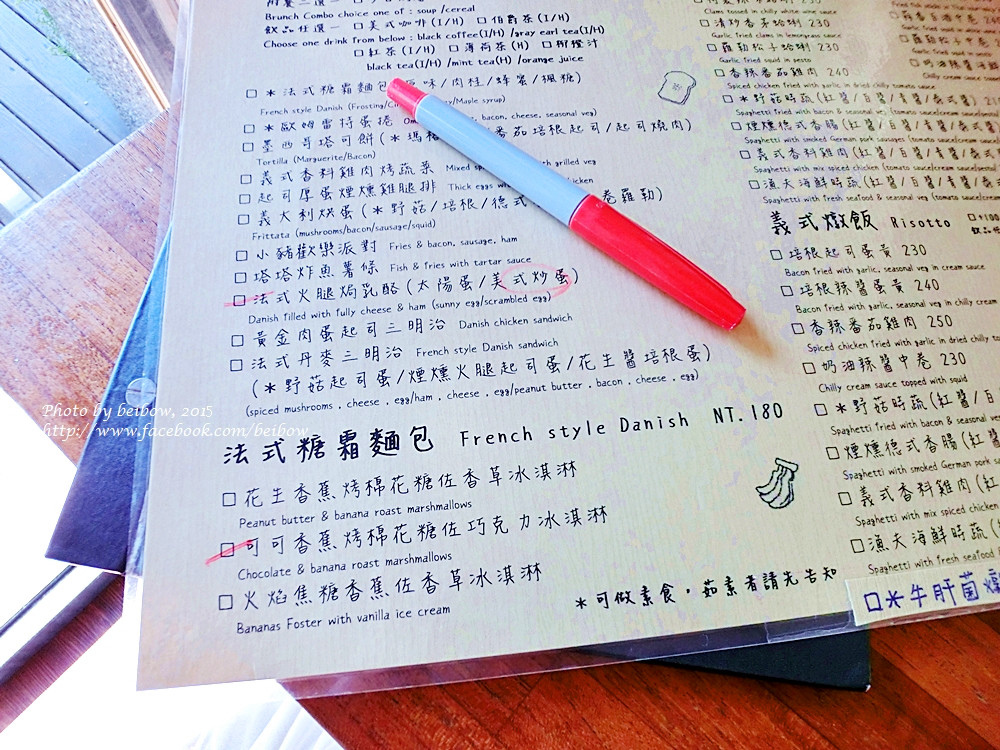 Brunch Combo choice one of : soup /cereal
飲品任選一 □ 美式咖啡(I/H) □ 伯爵茶(I/H)
Choose one drink from below : black coffee(I/H) /gray earl tea(I/H)
□ 紅茶(I/H) □ 薄荷茶(H) □ 柳橙汁
black tea(I/H) /mint tea(H) /orange juice
□ *法式糖霜麵包 味/肉桂/蜂蜜/楓糖)
French style Danish (Frosting/ /Maple syrup)
□ *歐姆雷特蛋捲 bacon, cheese, seasonal veg)
□ 墨西哥塔可餅(*瑪格 番茄培根起司/起司燒肉)
Tortilla (Marguerite/Bacon)
□ 義式香料雞肉烤蔬菜 Mixed grilled veg
□ 起司厚蛋煙燻雞腿排 Thick eggs
□ 義大利烘蛋(*野菇/培根/德式 卷羅勒)
Frittata (mushrooms/bacon/sausage/squid)
□ 小豬歡樂派對 Fries & bacon, sausage, ham
□ 塔塔炸魚薯條 Fish & fries with tartar sauce
□ 法式火腿焗乳酪(太陽蛋/美式炒蛋)
Danish filled with fully cheese & ham (sunny egg/scrambled egg)
□ 黃金肉蛋起司三明治 Danish chicken sandwich
□ 法式丹麥三明治 French style Danish sandwich
(*野菇起司蛋/煙燻火腿起司蛋/花生醬培根蛋)
(spiced mushrooms , cheese , egg/ham , cheese , egg/peanut butter , bacon , cheese , egg)
法式糖霜麵包 French style Danish NT.180
□ 花生香蕉烤棉花糖佐香草冰淇淋
Peanut butter & banana roast marshmallows
□ 可可香蕉烤棉花糖佐巧克力冰淇淋
Chocolate & banana roast marshmallows
□ 火焰焦糖香蕉佐香草冰淇淋
Bananas Foster with vanilla ice cream
*可做素食，茹素者請先告知
Clams tossed in chilly white wine sauce
□ 清炒香茅蛤蜊 230
Garlic fried clams in lemongrass sauce
□ 羅勒松子蛤蜊 230
Garlic fried squid in pesto
□ 香辣番茄雞肉 240
Spiced chicken fried with garlic in dried chilly tomato sauce
□ *野菇時蔬(紅醬/白醬/青醬/泰式醬)
Spaghetti fried with bacon & seasonal veg (tomato sauce/cream
□ 煙燻德式香腸(紅醬/白醬/青醬/泰式醬
Spaghetti with smoked German pork sausages (tomato sauce/cream
□ 義式香料雞肉(紅醬/白醬/青醬/泰式醬
Spaghetti with mix spiced chicken (tomato sauce/cream sauce/
□ 漁夫海鮮時蔬(紅醬/白醬/青醬/泰
Spaghetti with fresh seafood & seasonal veg (tomato sauce/cream
義式燉飯 Risotto
□ 培根起司蛋黃 230
Bacon fried with garlic, seasonal veg in cream sauce
□ 培根辣醬蛋黃 240
Bacon fried with garlic, seasonal veg in chilly cream
□ 香辣番茄雞肉 250
Spiced chicken fried with garlic in dried chilly to
□ 奶油辣醬中卷 230
Chilly cream sauce topped with squid
□ *野菇時蔬(紅醬/白
Spaghetti fried with bacon & seasonal veg
□ 煙燻德式香腸(紅醬
Spaghetti with smoked German pork sa
□ 義式香料雞肉(紅
Spaghetti with mix spiced chicken
□ 漁夫海鮮時蔬(
Spaghetti with fresh seafood
□*牛肝菌燉
Photo by beibow, 2015
http://www.facebook.com/beibow